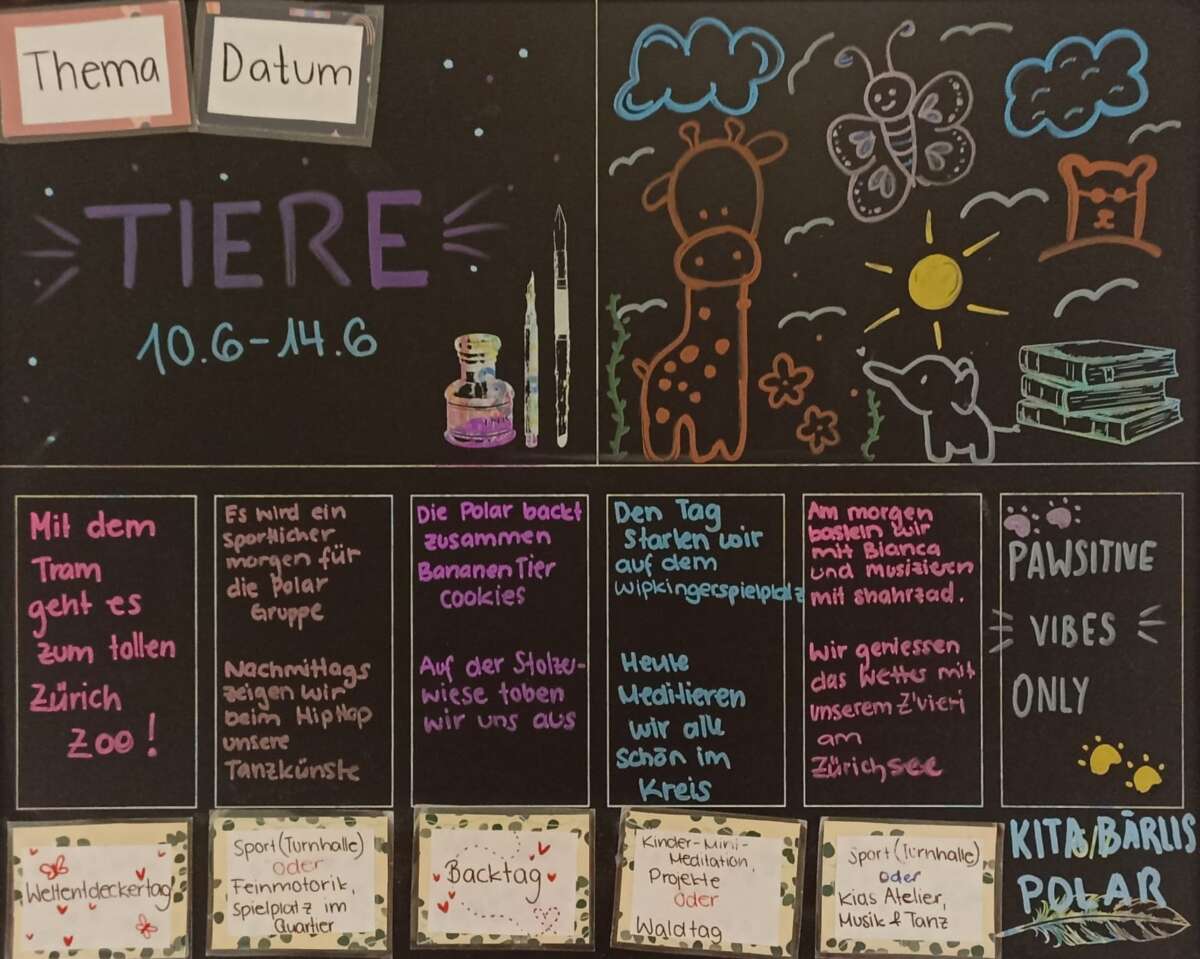 Thema
Datum
TIERE
10.6-14.6
Mit dem
Tram
geht es
zum tollen
Zürich
Zoo!
Es wird ein
Sportlicher
morgen für
die Polar
Gruppe
Nachmittags
zeigen wir
beim HipHop
unsere
Tanzkünste
Die Polar backt
zusammen
Bananen Tier
cookies
Auf der Stolze-
wiese toben
wir uns aus
Den Tag
Starten wir
auf dem
Wipkingerspielplatz
Heute
Meditieren
wir alle
schön im
Kreis
Am morgen
basteln wir
mit Bianca
und musizieren
mit shahrzad.
Wir geniessen
das Wetter mit
unserem Z'vieri
am
Zürichsee
PAWSITIVE
VIBES
ONLY
Weltentdeckertag
Sport (Turnhalle)
oder
Feinmotorik,
Spielplatz im
Quartier
Backtag
Kinder-Mini-
Meditation,
Projekte
oder
Waldtag
Sport (Turnhalle)
oder
Kias Atelier,
Musik & Tanz
KITA BÄRLIS
POLAR